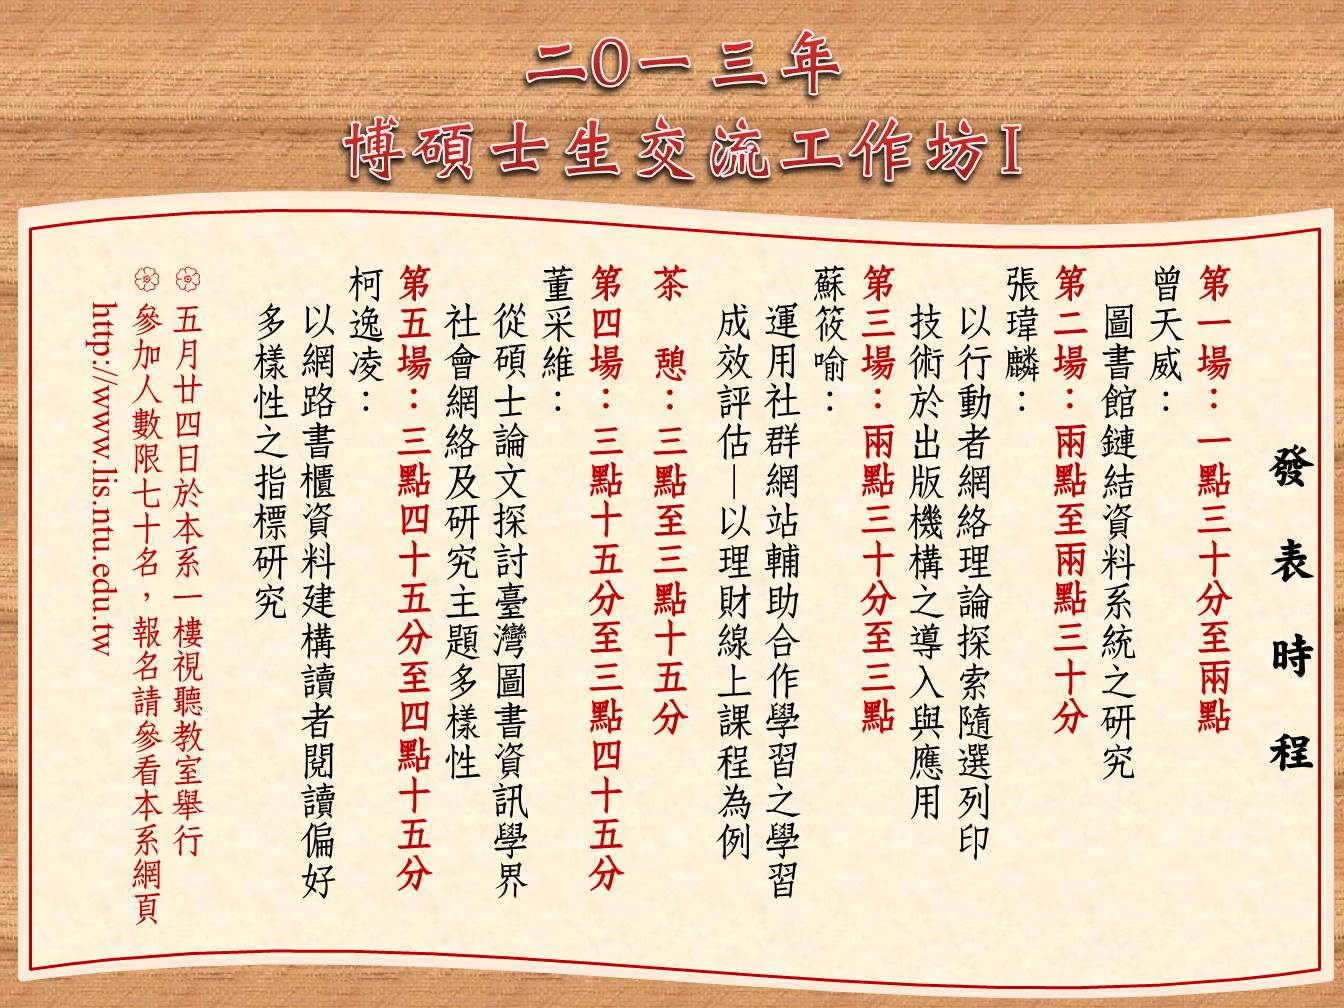 二O一三年
博碩士生交流工作坊I
發表時程
第一場：一點三十分至兩點
曾天威：
圖書館鏈結資料系統之研究
第二場：兩點至兩點三十分
張瑋麟：
以行動者網絡理論探索隨選列印
技術於出版機構之導入與應用
第三場：兩點三十分至三點
蘇筱喻：
運用社群網站輔助合作學習之學習
成效評估—以理財線上課程為例
茶　憩：三點至三點十五分
第四場：三點十五分至三點四十五分
董采維：
從碩士論文探討臺灣圖書資訊學界
社會網絡及研究主題多樣性
第五場：三點四十五分至四點十五分
柯逸凌：
以網路書櫃資料建構讀者閱讀偏好
多樣性之指標研究
五月廿四日於本系一樓視聽教室舉行
參加人數限七十名，報名請參看本系網頁
http://www.lis.ntu.edu.tw